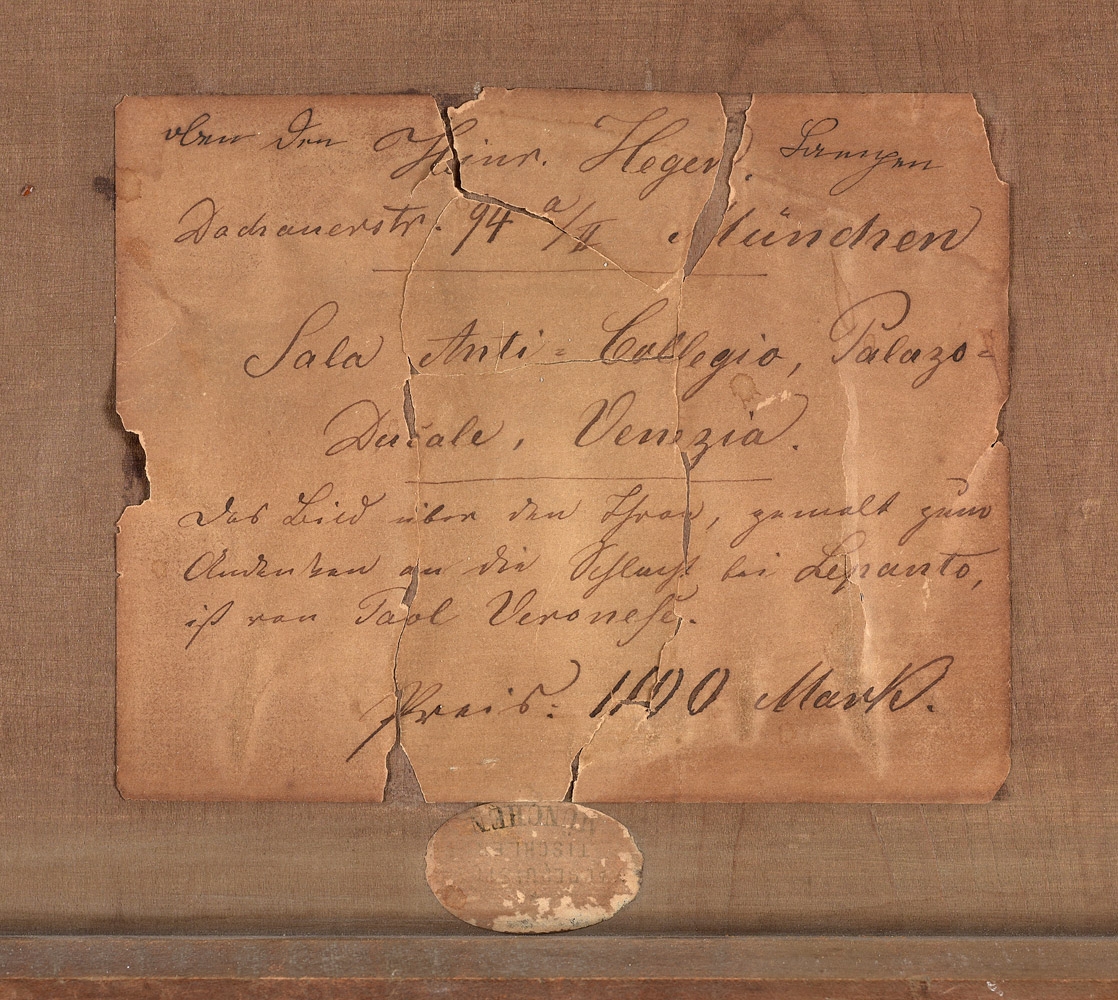 oben den Heinr. Heger. Lampen
Dachauerstr. 94 a/II München
Sala Anti=Collegio, Palazo=
Ducale, Venezia.
Das Bild über den Thron, gemalt zum
Andenken an die Schlacht bei Lepanto,
ist von Paol Veronese.
Preis: 1100 Mark.
MÜNCHEN
TISCHLER